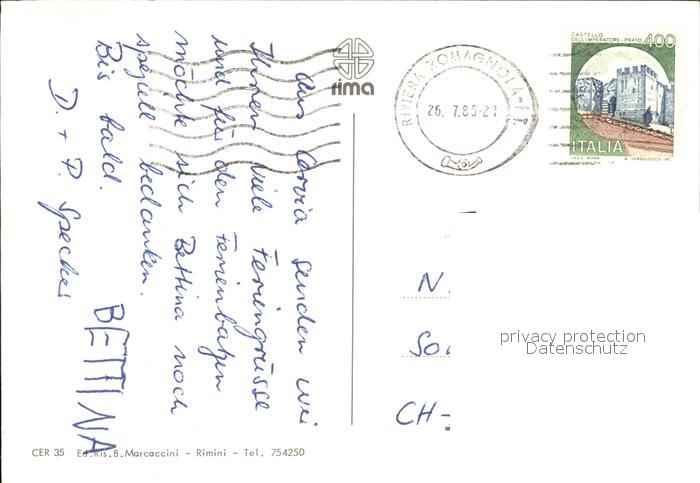 Aus Cervia senden wir
Ihnen viele Feriengrüsse
und für den Ferienbatzen
möchte sich Bettina noch
speziell bedanken.
Bis bald.
D. + P. Specker
BETTINA
rima
RIVIERA ROMAGNOLA
26. 7.85-21
CASTELLO
DELL'IMPERATORE-PRATO
400
ITALIA
N.
So
CH-
privacy protection
Datenschutz
CER 35 Ed.Ris.B.Marcaccini - Rimini - Tel. 754250